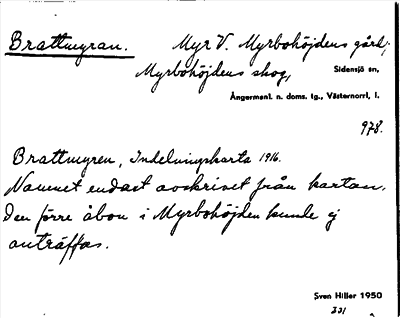 Brattmyran. Myr V. Myrbohöjdens gård,
Myrbohöjdens skog, Sidensjö sn,
Ångermanl. n. doms. tg., Västernorrl, l.
978.
Brattmyren, Indelningskarta 1916.
Namnet endast avskrivet från kartan.
Den förre åbon i Myrbohöjden kunde ej
anträffas.
Sven Hiller 1950
331